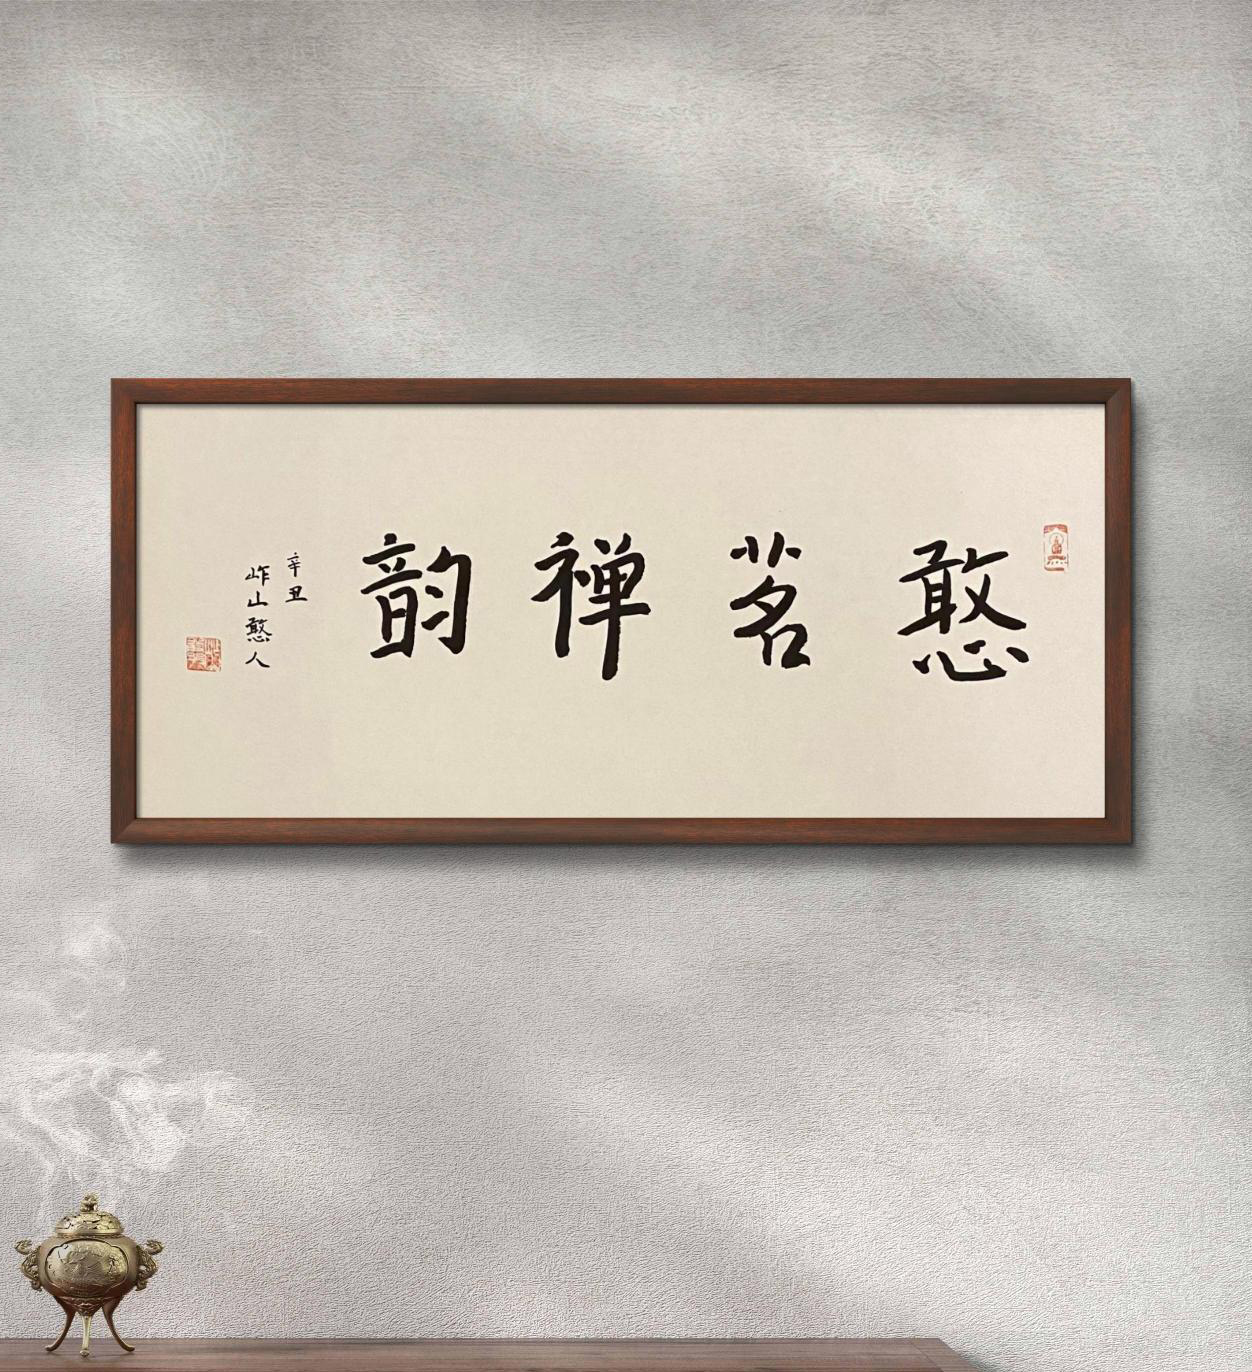 憨茗禅韵
辛丑
岞山憨人